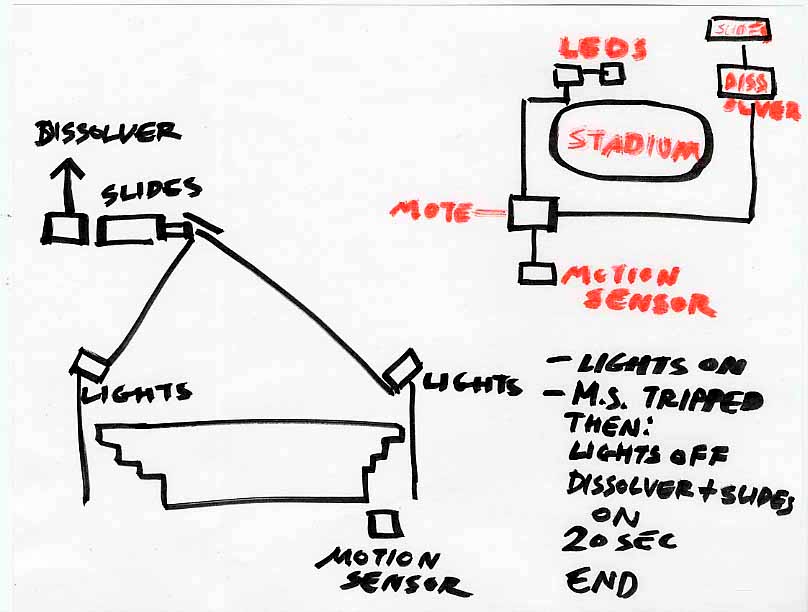 DISSOLVER
SLIDES
LIGHTS
LIGHTS
MOTION
SENSOR
LEDS
SLIDES
DISS
OLVER
STADIUM
MOTE
MOTION
SENSOR
- LIGHTS ON
- M.S. TRIPPED
THEN:
LIGHTS OFF
DISSOLVER + SLIDES
ON
20 SEC
END